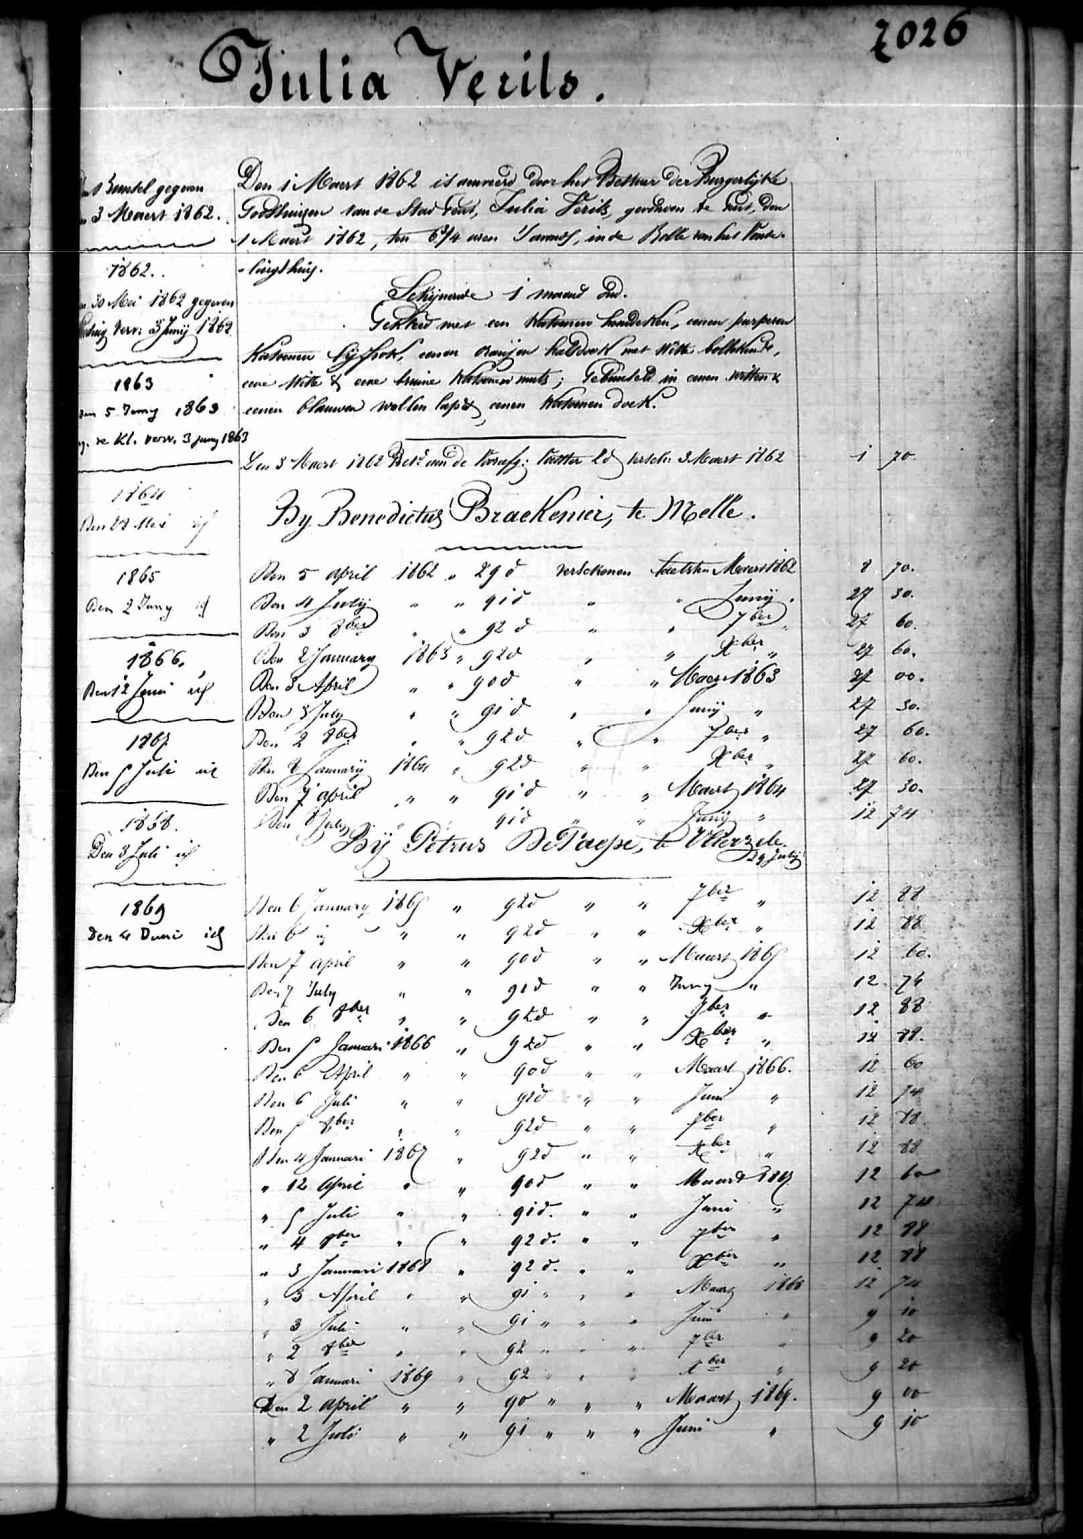 2026
Julia Verils.
Den 1 Maert 1862 is aenveerd door het Bestuer der Burgerlijke
Godshuizen van de Stad Gent, Julia Verils, geboren te Gent, den
1 Maert 1862, ten 6 3/4 uren 's avonds, in de Rolle van het Vonde-
lingshuis.
Schijnende 1 maand oud.
Gekleed met een katoenen hemdeken, eenen purperen
katoenen lijfrok, eenen oranjen halsdoek met witte bollekens,
eene witte & eene bruine katoenen muts; Gebunseld in eenen witten &
eenen blauwen wollen lap & eenen katoenen doek.
Den 3 Maert 1862 Bet. aan de Voorsch: Voetster 2 d verschn 3 Maert 1862 1 70
By Benedictus Braekenier, te Melle.
Den 5 April 1862 " 29 d verschenen laetsten Maert 1862 8 70.
Den 4 July " " 91 d " " Junij . 27 30.
Den 3 8ber " " 92 d " " 7ber " 27 60.
Den 2 January 1863 " 92 d " " Xber " 27 60.
Den 3 April " " 90 d " " Maert 1863 27 00.
Den 3 July " " 91 d " " Junij " 27 30.
Den 2 8ber " " 92 d " " 7ber " 27 60.
Den 8 January 1864 " 92 d " " Xber " 27 60.
Den 7 april " " 91 d " " Maert 1864 27 30.
Den 8 July " " 91 d " " Junij " 12 74
Bij Petrus De Paepe, te Vlierzele.
Den 6 January 1865 " 92 d " " 7ber " 12 88
Den 6 id " " 92 d " " Xber " 12 88
Den 7 april " " 90 d " " Maert 1865 12 60.
Den 7 July " " 91 d " " Juny " 12 74
Den 6 8ber " " 92 d " " 7ber " 12 88
Den 5 Januari 1866 " 92 d " " Xber " 12 88.
Den 6 April " " 90 d " " Maart 1866. 12 60
Den 6 Juli " " 91 d " " Juni " 12 74
Den 5 8ber " " 92 d " " 7ber " 12 88
Den 4 Januari 1867 " 92 d " " Xber " 12 88
" 12 April " " 90 d " " Maart 1867 12 60
" 5 Juli " " 91 d. " " Juni " 12 74
" 4 8ber " " 92 d. " " 7ber " 12 88
" 3 Januari 1868 " 92 d. " " Xber " 12 88
" 3 April " " 91 " " " Maart 1868 12 74
" 3 Juli " " 91 " " " Juni " 9 10
" 2 8ber " " 92 " " " 7ber " 9 20
" 8 Januari 1869 " 92 " " " Xber " 9 20
Den 2 April " " 90 " " " Maart 1869. 9 00
" 2 Juli " " 91 " " " Juni " 9 10
Bunsel gegeven
3 Maert 1862.
1862.
30 Mei 1862 gegeven
verv. 3 Junij 1862
1863
5 Juny 1863
kl. verv. 3 juny 1863
1864
Den 28 Mei id
1865
Den 2 Juny id
1866.
Den 12 Juni id
1867
Den 5 Juli id
1868.
Den 3 Juli id
1869
Den 4 Juni id